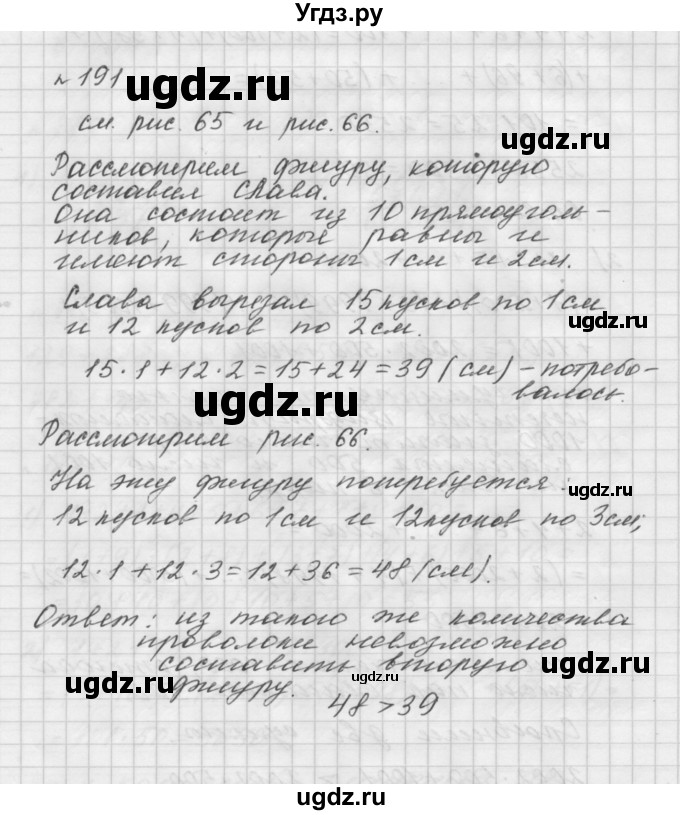 Угдз.ру
№ 191
см. рис. 65 и рис. 66.
Рассмотрим фигуру, которую
составил Слава.
Она состоит из 10 прямоуголь-
ников, которые равны и
имеют стороны 1 см и 2 см.
Слава вырезал 15 кусков по 1 см
и 12 кусков по 2 см.
15·1+12·2=15+24=39 (см) – потребо-
валось.
Рассмотрим рис. 66.
На эту фигуру потребуется:
12 кусков по 1 см и 12 кусков по 3 см;
12·1+12·3=12+36=48 (см).
Ответ: из такого же количества
проволоки невозможно
составить вторую
фигуру.
48 > 39
ugdz.ru
ugdz.ru
ugdz.ru
ugdz.ru
ugdz.ru
ugdz.ru
ugdz.ru
ugdz.ru
ugdz.ru
ugdz.ru
ugdz.ru